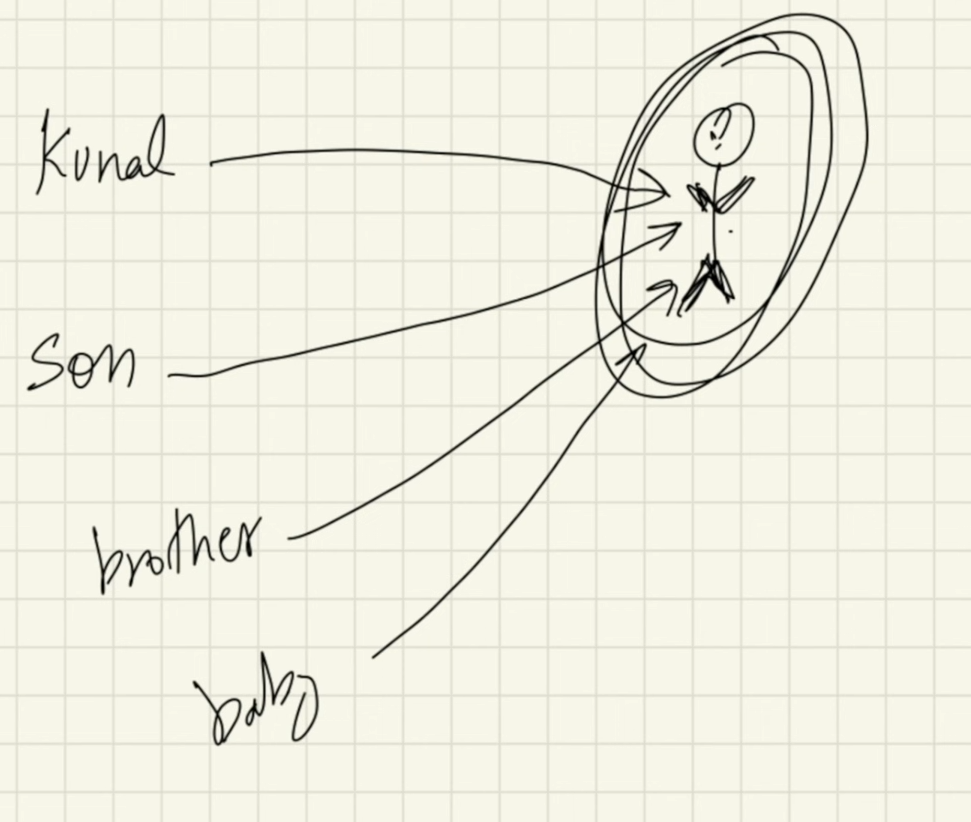 Kunal
Son
brother
baby